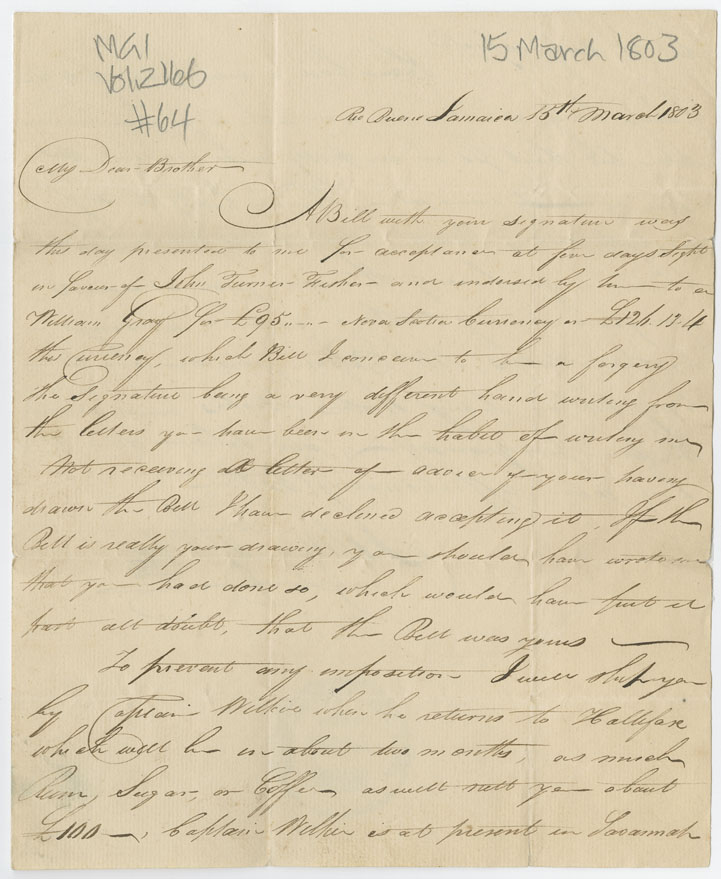 MG1
Vol. 2166
#64
15 March 1803
Rio Bueno Jamaica 15th March 1803
My Dear Brother
A Bill with your signature was
this day presented to me for acceptance at five days sight
in favour of John Turner Fisher and endorsed by him to a
William Gray for £95..... Nova Scotia Currency or £124.13.4
this Currency, which Bill I conceive to be a forgery
the signature being a very different hand writing from
the letters you have been in the habit of writing me
Not receiving a letter of advice of your having
drawn the Bill I have declined accepting it. If the
Bill is really your drawing, you should have wrote me
that you had done so, which would have put it
past all doubt, that the Bill was yours
To prevent any imposition I will ship you
by Captain Wilkie when he returns to Hallifax
which will be in about two months, as much
Rum, Sugar, or Coffee as will nett you about
£100 —, Captain Wilkie is at present in Savannah